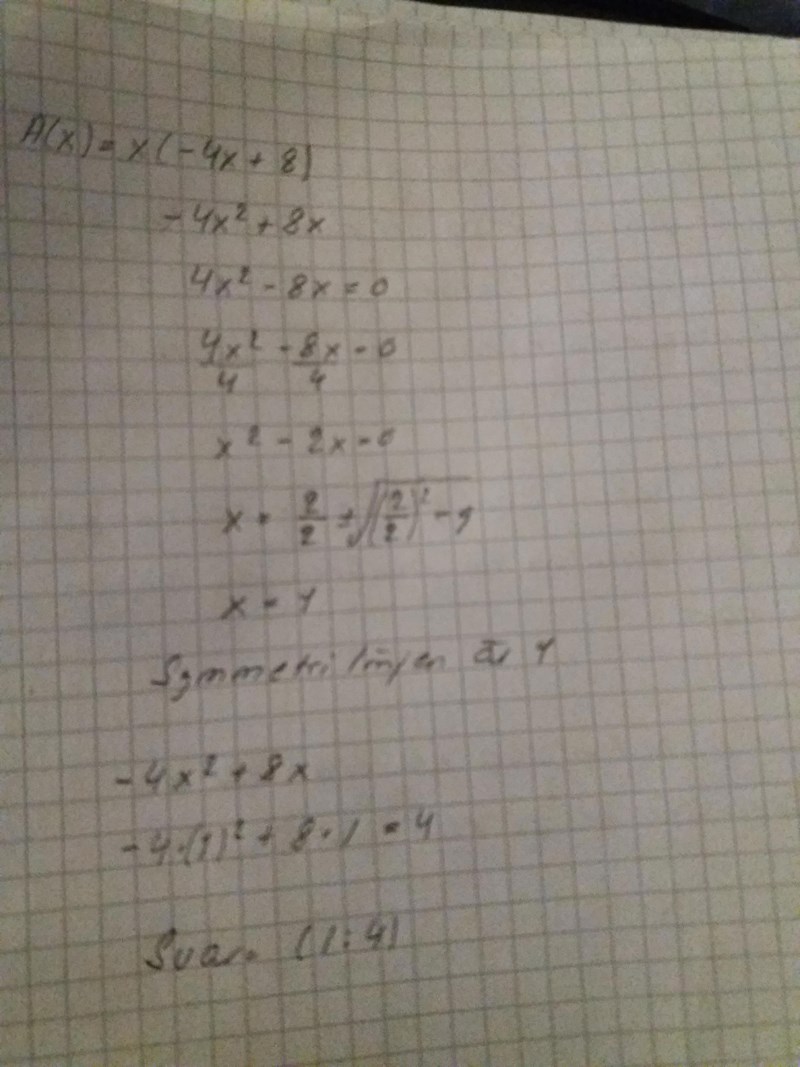 A(x) = x(-4x + 8)
-4x² + 8x
4x² - 8x = 0
4x²/4 - 8x/4 = 0
x² - 2x = 0
x = 2/2 ± √((2/2)² -
x = 1
Symmetrilinjen är 1
-4x² + 8x
-4·(1)² + 8·1 = 4
Svar: (1:4)